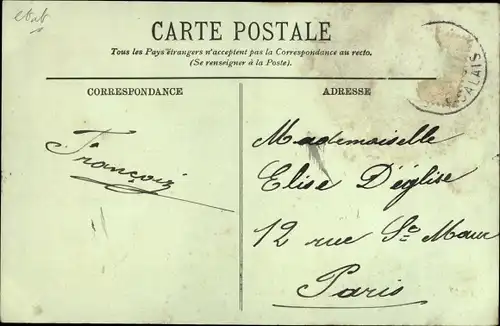 etat
CARTE POSTALE
Tous les Pays étrangers n'acceptent pas la Correspondance au recto.
(Se renseigner à la Poste).
CORRESPONDANCE
ADRESSE
CALAIS
François
Mademoiselle
Elise Déglise
12 rue St Maur
Paris